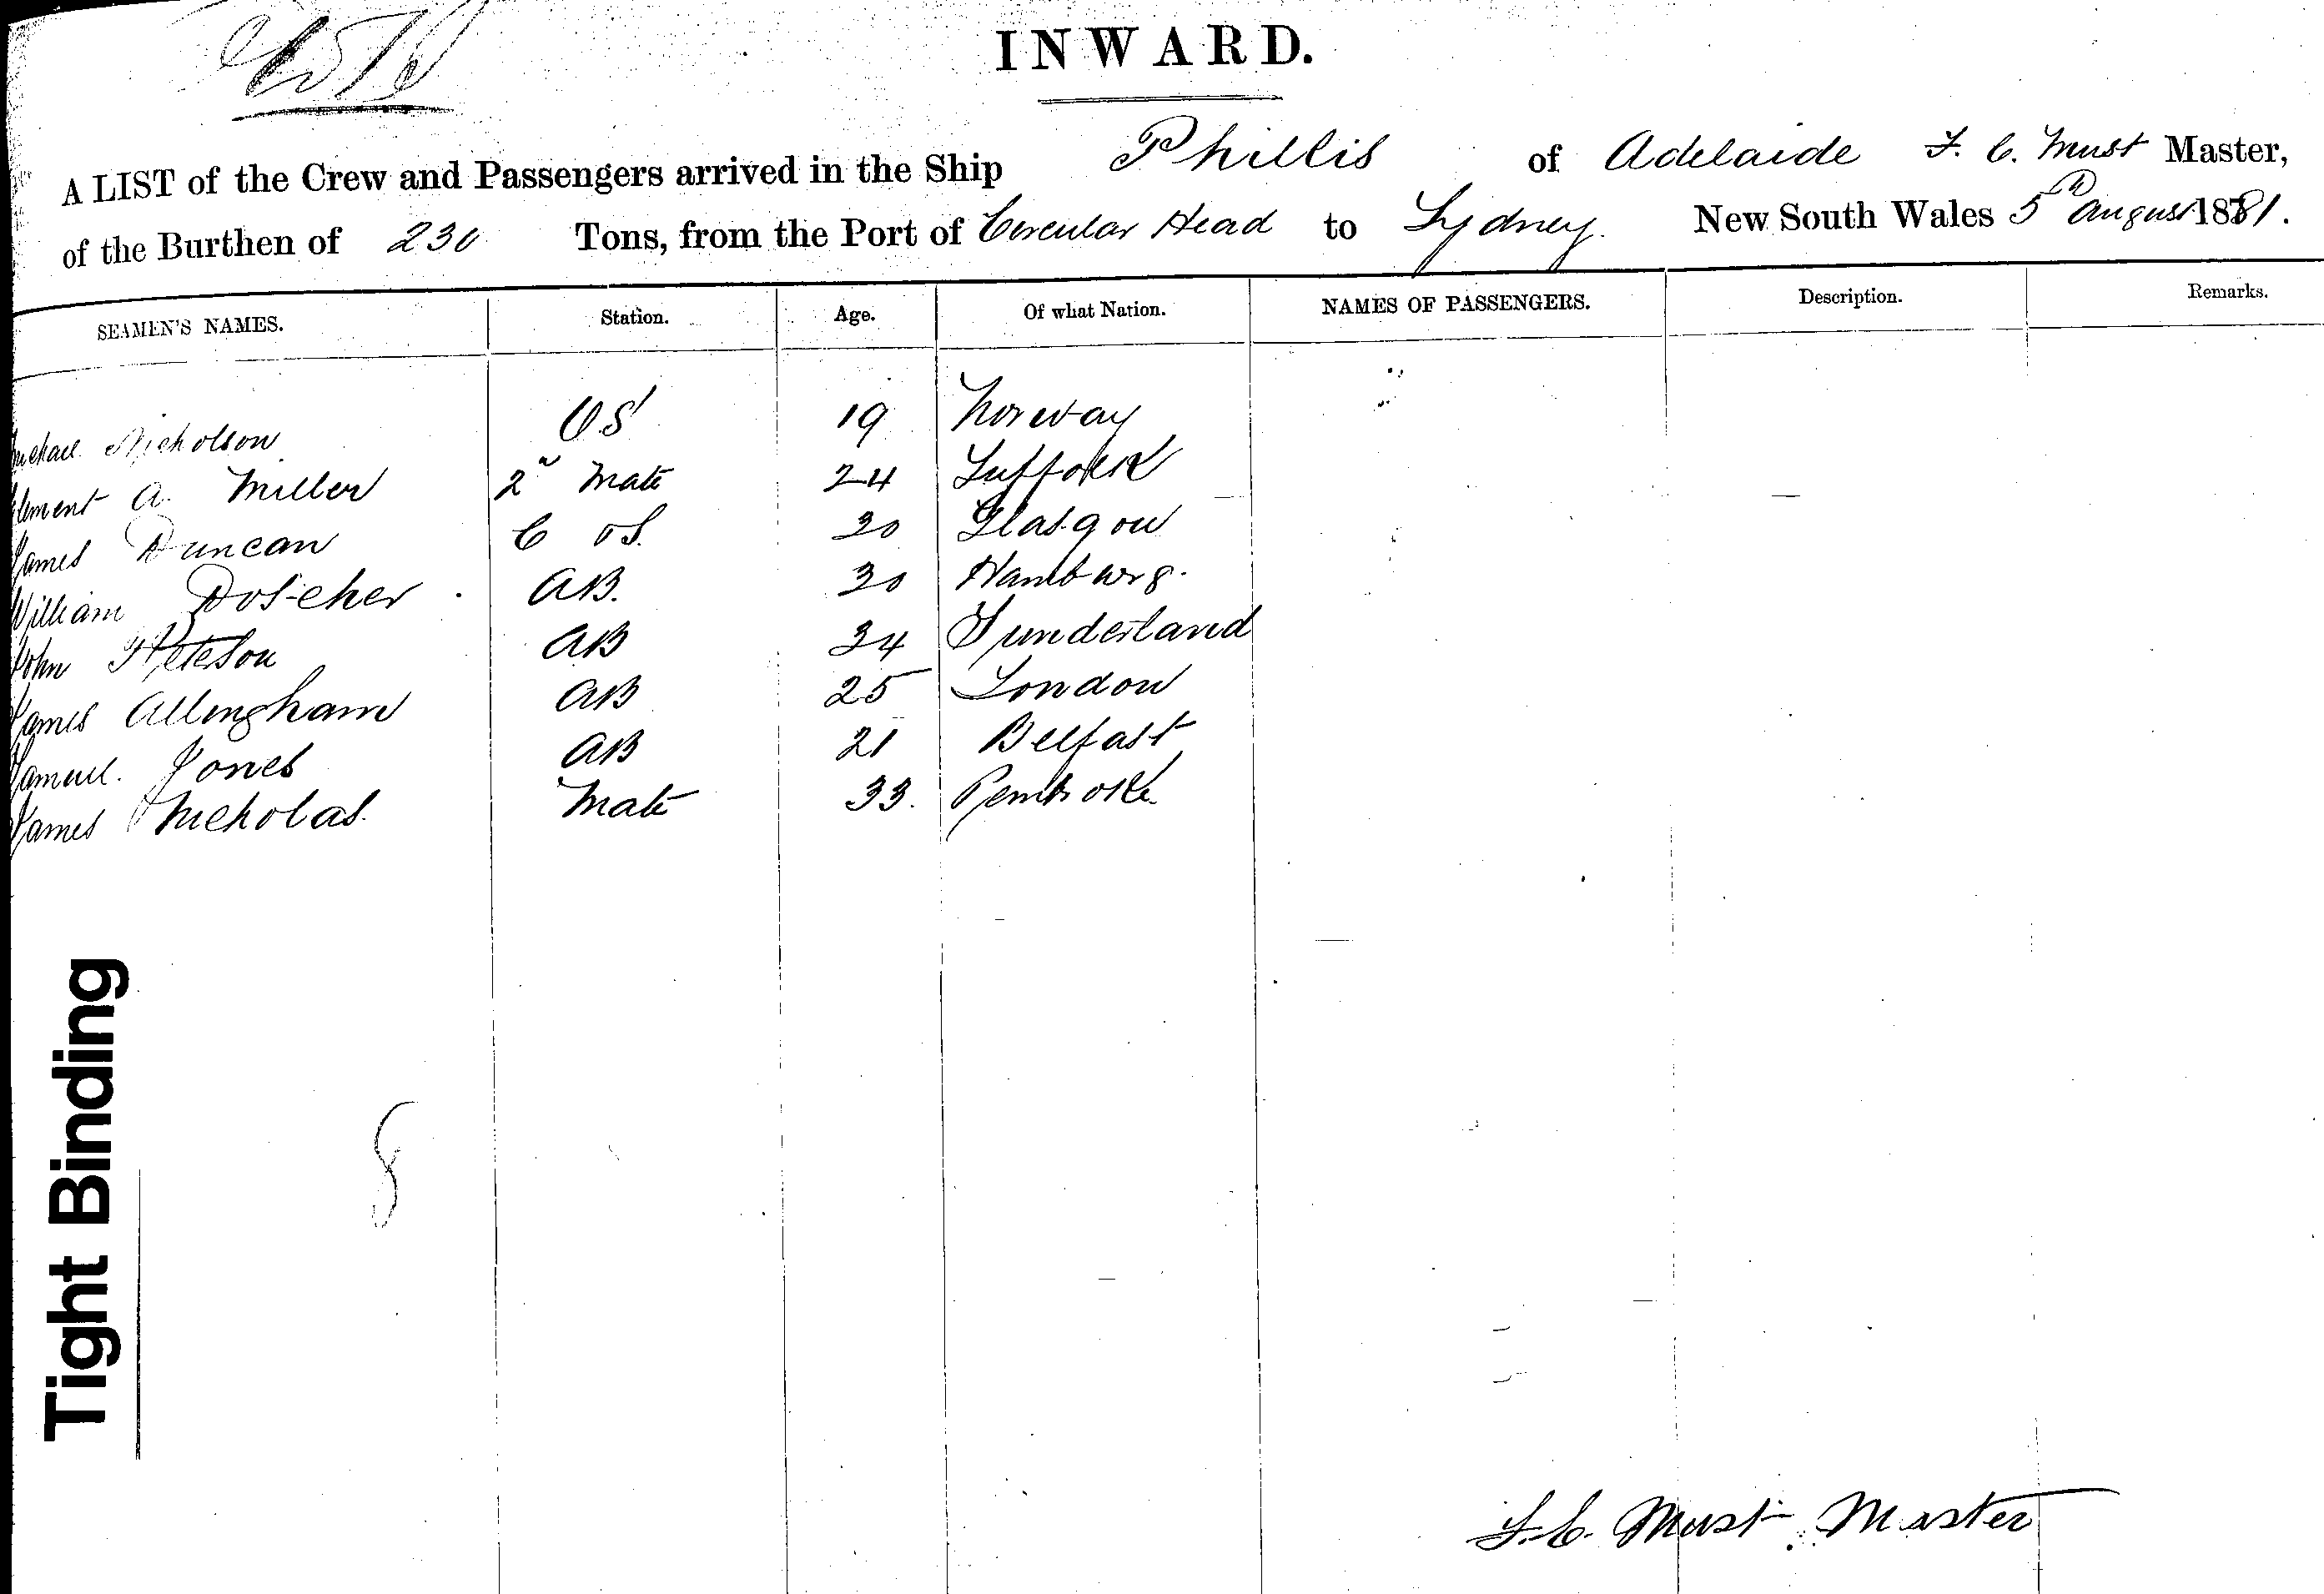 INWARD.
A LIST of the Crew and Passengers arrived in the Ship Phillis of Adelaide F. C. Must Master,
of the Burthen of 230 Tons, from the Port of Circular Head to Sydney. New South Wales 5th August 1881.
SEAMEN'S NAMES. Station. Age. Of what Nation. NAMES OF PASSENGERS. Description. Remarks.
Nicholson OS 19 Norway
Clement A. Miller 2nd Mate 24 Suffolk
James Duncan C OS. 20 Glasgow
William Doscher AB. 30 Hamburg.
John Peterson AB 34 Sunderland
James Allingham AB 25 London
Samuel. Jones AB 21 Belfast
James Nicholas. Mate 33. Pembroke
Tight Binding
8
F. C. Must Master